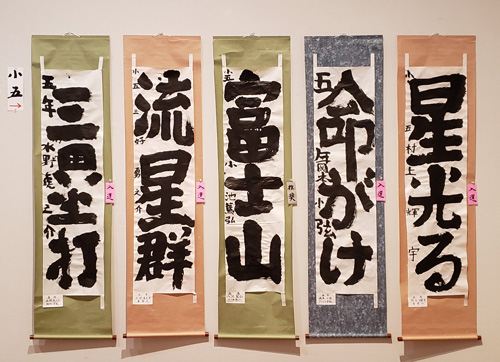 小五
→
三塁打
五年 水野虎之介
入選
流星群
小五
入選
富士山
小五
命がけ
五
入選
星光る
小五 村上
入選